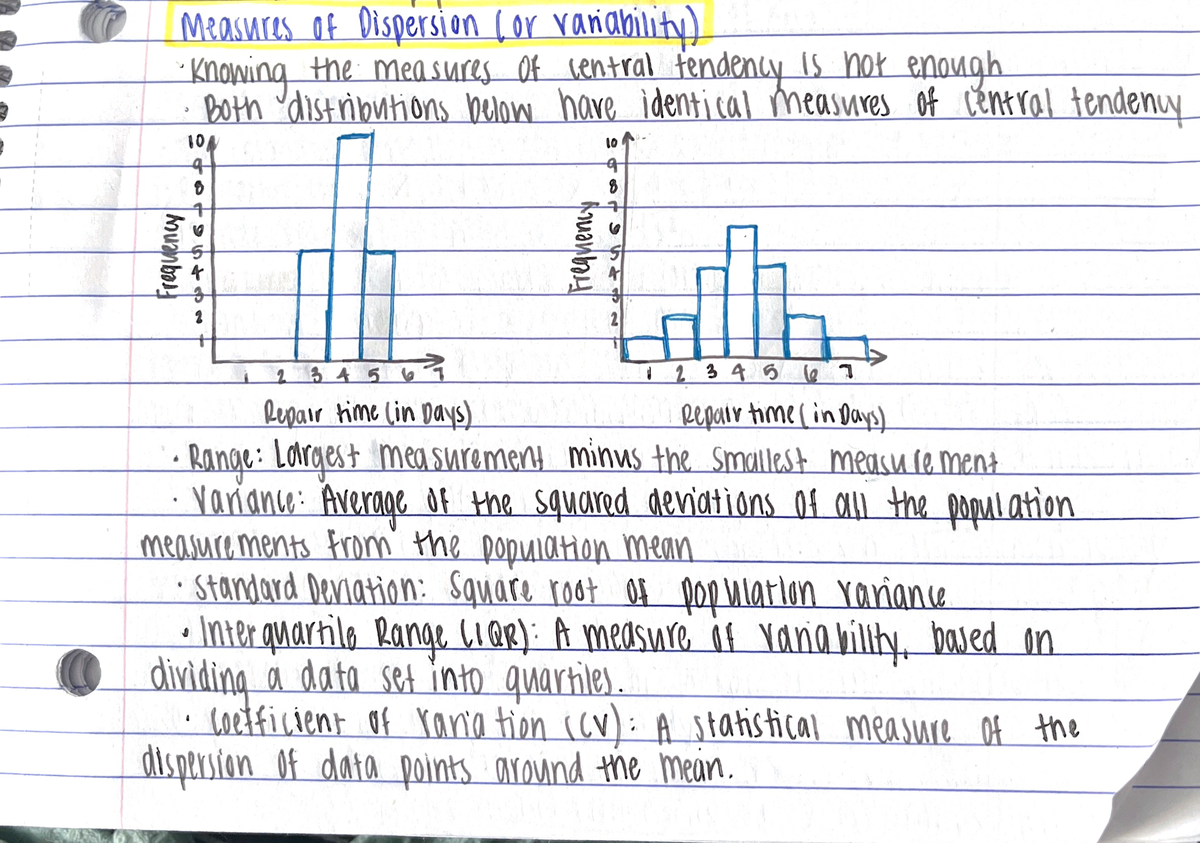 Measures of Dispersion (or variability)
· Knowing the measures of central tendency is not enough
· Both distributions below have identical measures of central tendency
10
9
8
7
6
5
4
3
2
1
Frequency
1 2 3 4 5 6 7
Repair time (in Days)
10
9
8
7
6
5
4
3
2
1
Frequency
1 2 3 4 5 6 7
Repair time (in Days)
· Range: Largest measurement minus the smallest measurement
· Variance: Average of the squared deviations of all the population
measurements from the population mean
· Standard Deviation: Square root of population variance
· Interquartile Range (IQR): A measure of variability, based on
dividing a data set into quartiles.
· Coefficient of Variation (CV): A statistical measure of the
dispersion of data points around the mean.